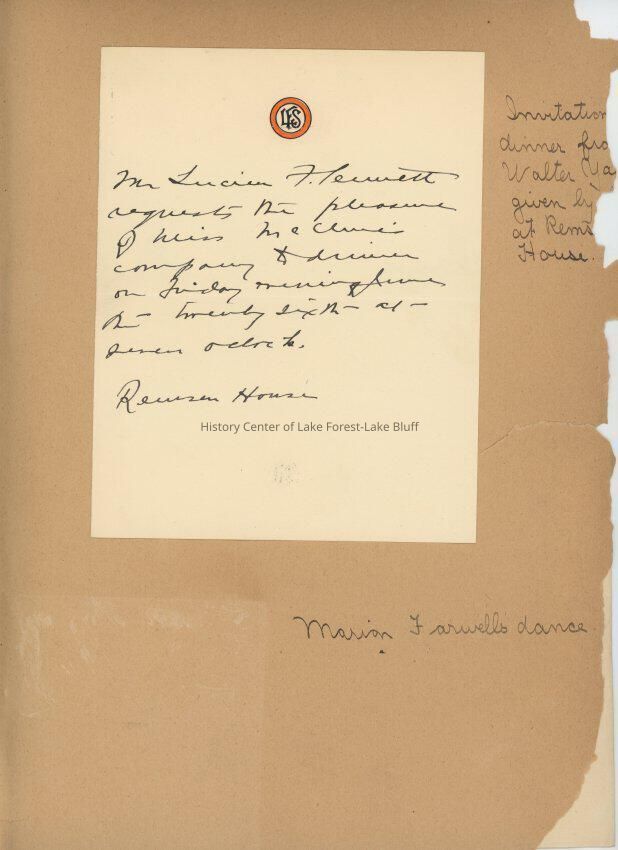 LFS
Mr Lucian F.
requests the pleasure
of Miss McClure's
company to dinner
on Friday evening June
the twenty sixth at
seven oclock.
Remsen House
History Center of Lake Forest-Lake Bluff
Invitation
dinner fro
Walter Ya
given by
at Rems
House.
Marion Farwell's dance